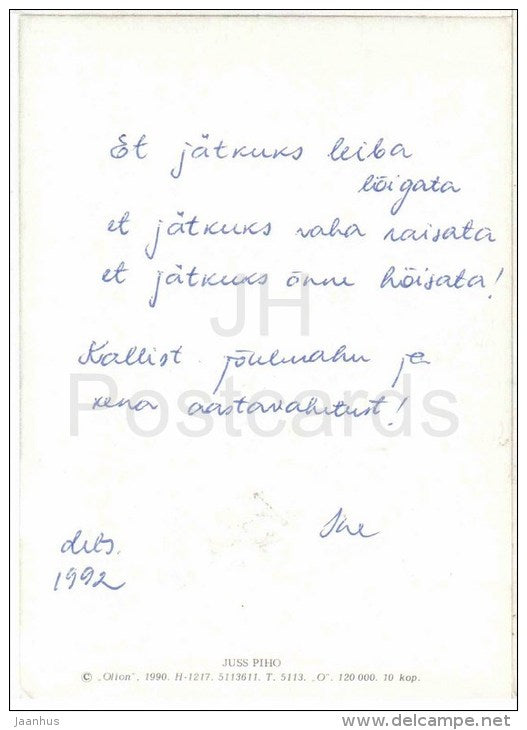 Et jätkuks leiba
lõigata
et jätkuks raha raisata
et jätkuks õnne hõisata!
JH
Kallist jõulurahu ja
Postcards
kena aastavahetust!
dets.
1992
JUSS PIHO
© „Olion“, 1990. H-1217. 5113611. T. 5113. „O“. 120 000. 10 kop.
jaanhus
www.delcampe.net